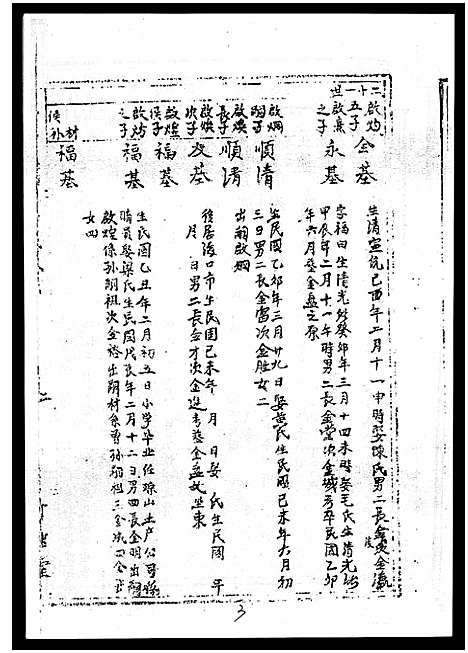 二十一世
啟灼五子 金基
啟熹之子 永基
啟炯嗣子 順清
啟煥長子 順清
啟煥次子 及基
啟煌侯子 福基
啟灼之子 福基
侯材外 福基
生清宣統己酉年二月十一申時娶陳氏男二長金
字福田生清光緒癸卯年三月十四未時娶毛氏生清光緒
甲辰年二月十一年時男二長金堂次金城考卒民國乙卯
年六月葬金盘之原
生民國乙卯年三月廿九日娶黄氏生民國己未年六月初
三日男二長金富次金勝女二
出嗣啟炯
徙居海口市生民國己未年 月 日娶 氏生民國 年
月 日男二長金才次金進考葬金盘坟坐東
生民國乙丑年二月初五日小学毕业任琼山土产公司
職員娶梁氏生民國戊辰年二月十二日男四長金明出嗣
啟煌侯孫嗣祖次金裕出嗣材 孫嗣祖三金 四金
女四
3